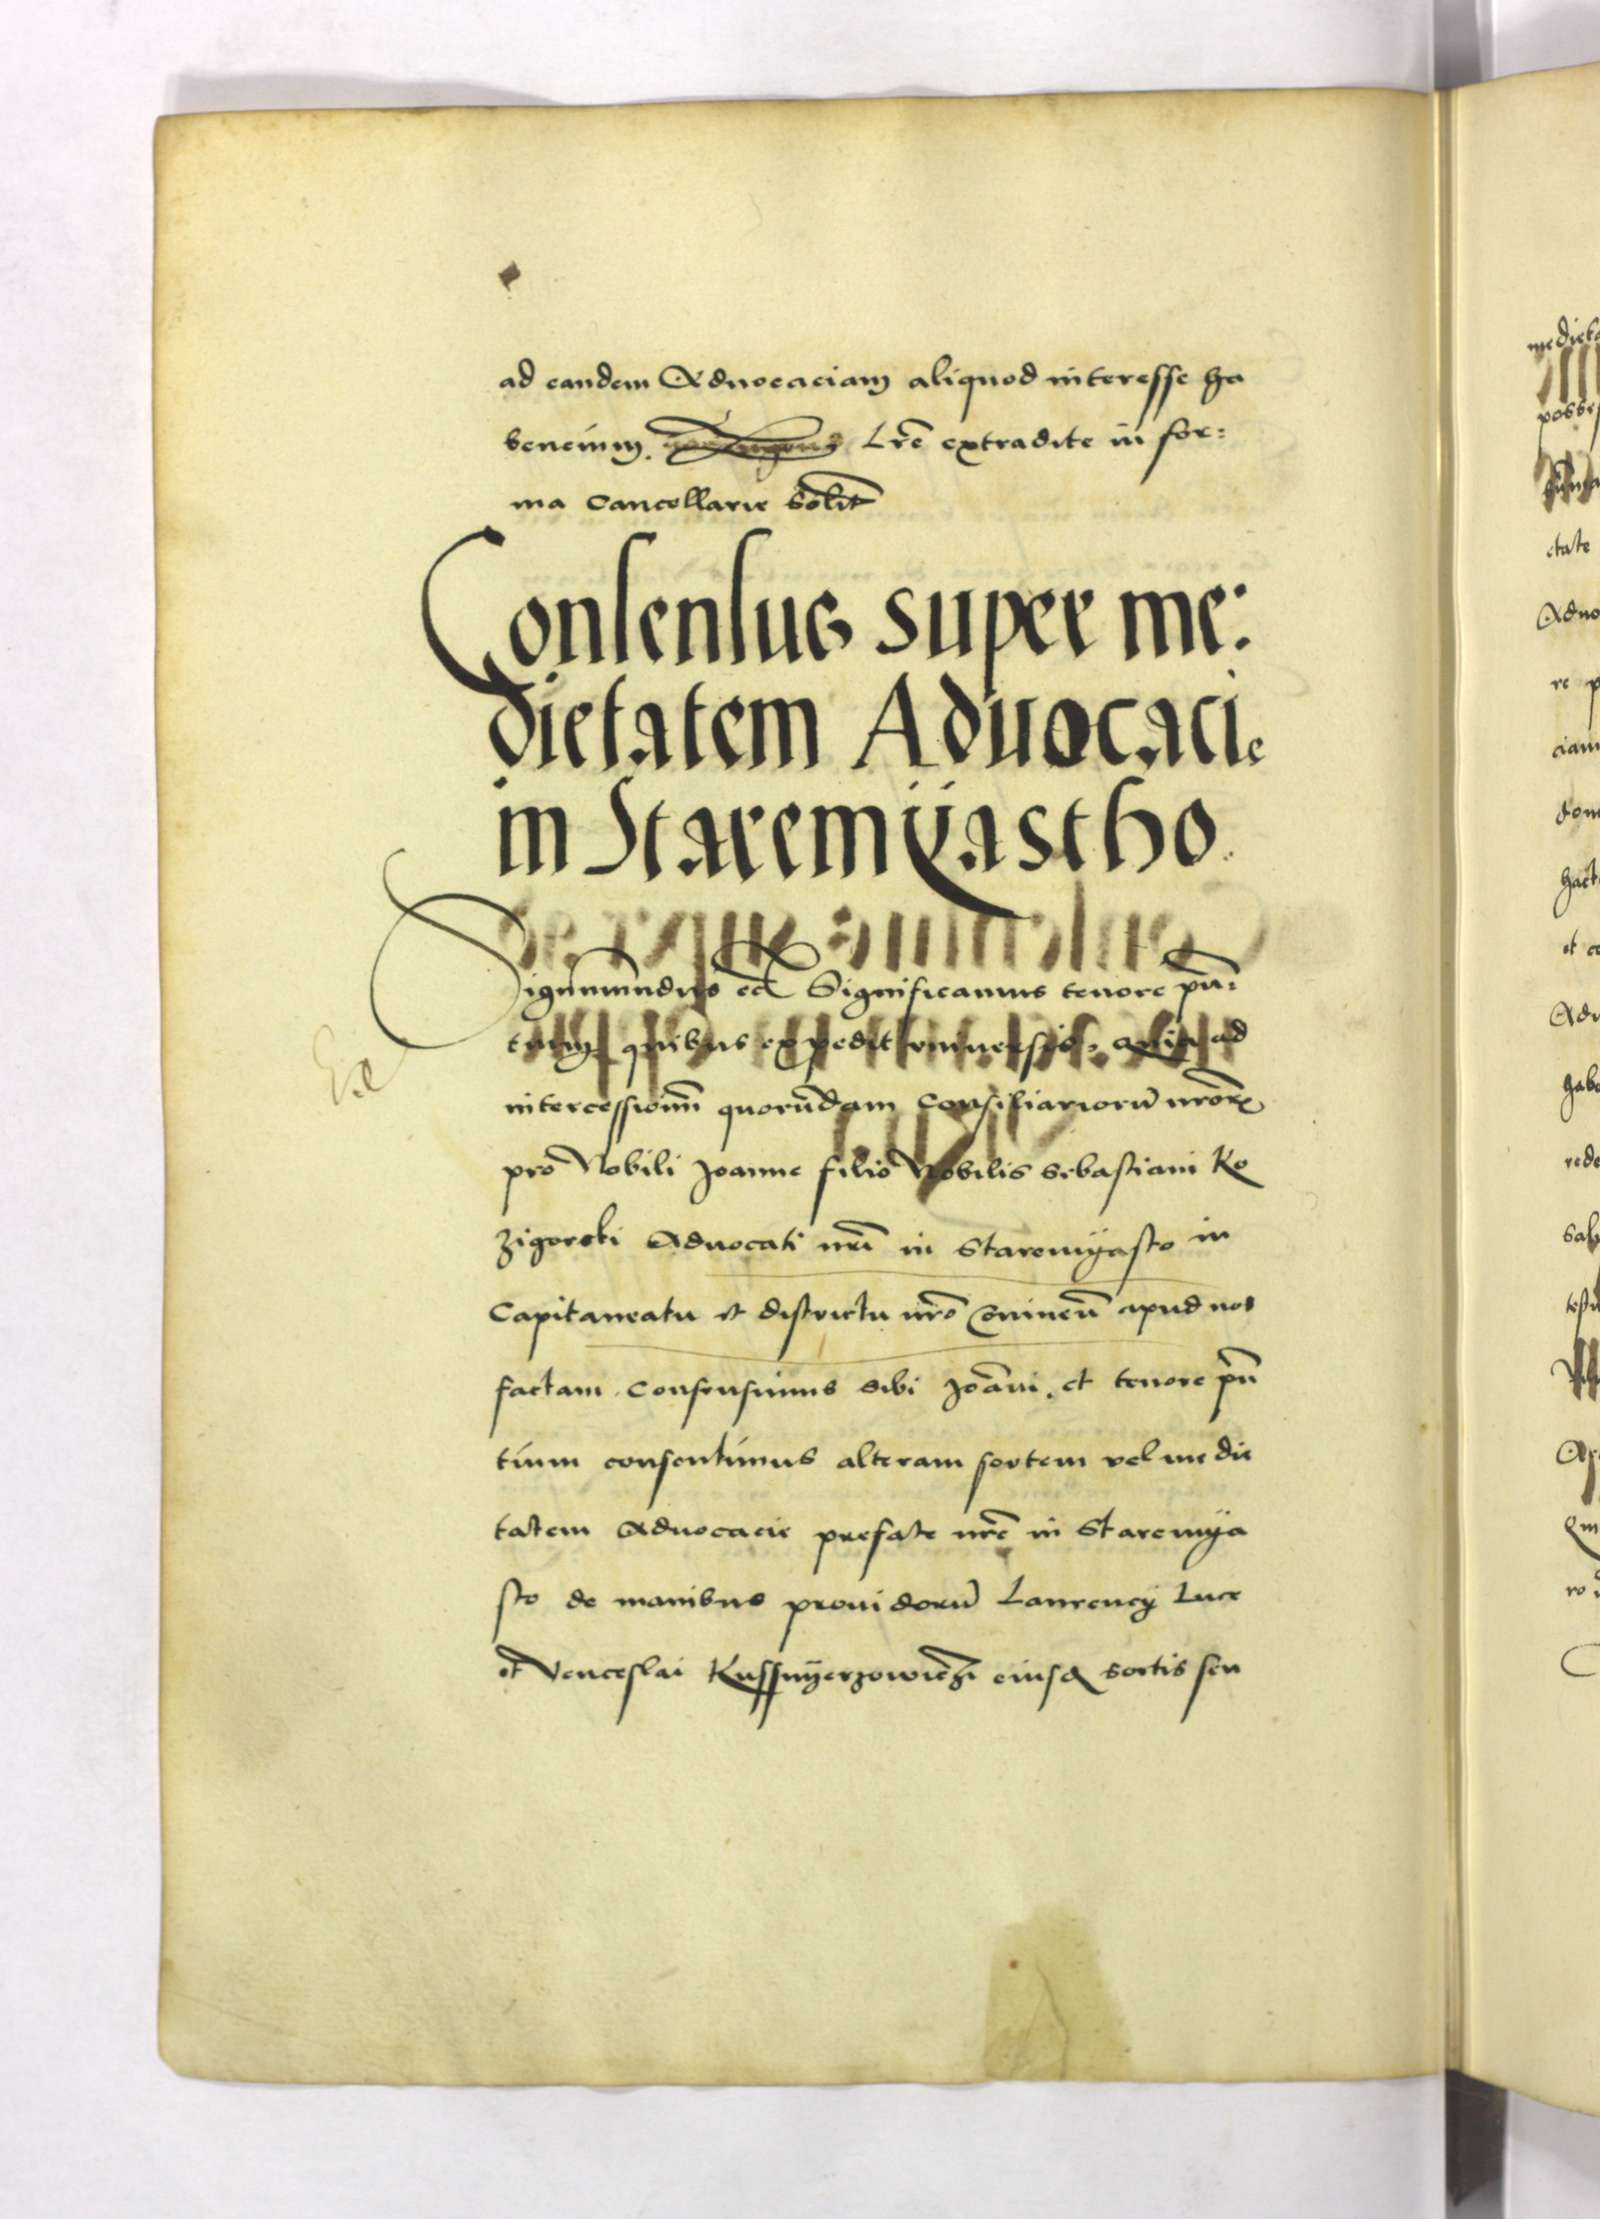 ad eandem Aduocaciam aliquod interesse ha
bencium. Lrē extradite in for:
ma Cancellarie Solit
Consensus super me:
dietatem Aduocacie
in Staremÿastho
Sigismundus ecꝫ Significamus tenore pn̄:
tium quibus expedit vniuersis, quia ad
intercessionem quorundam Consiliariorū nrōrꝫ
pro Nobili Joanne filio Nobilis Sebastiani Ko
zigorski Aduocati nrī in Staremÿasto in
Capitaneatu et districtu nrō apud nos
factam. Consensimus sibi Joāni. et tenore pn̄
tium consentimus alteram sortem vel medie
tatem Aduocacie prefate nrē in Staremÿa
sto de manibus prouidorū Laurencÿ Luce
et Venceslai eiusdē sortis seu